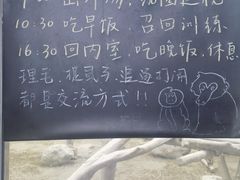 10:30 吃早饭、召回训练
16:30 回内室、吃晚饭、休息
理毛、捉虱子、追逐打闹
都是交流方式!!